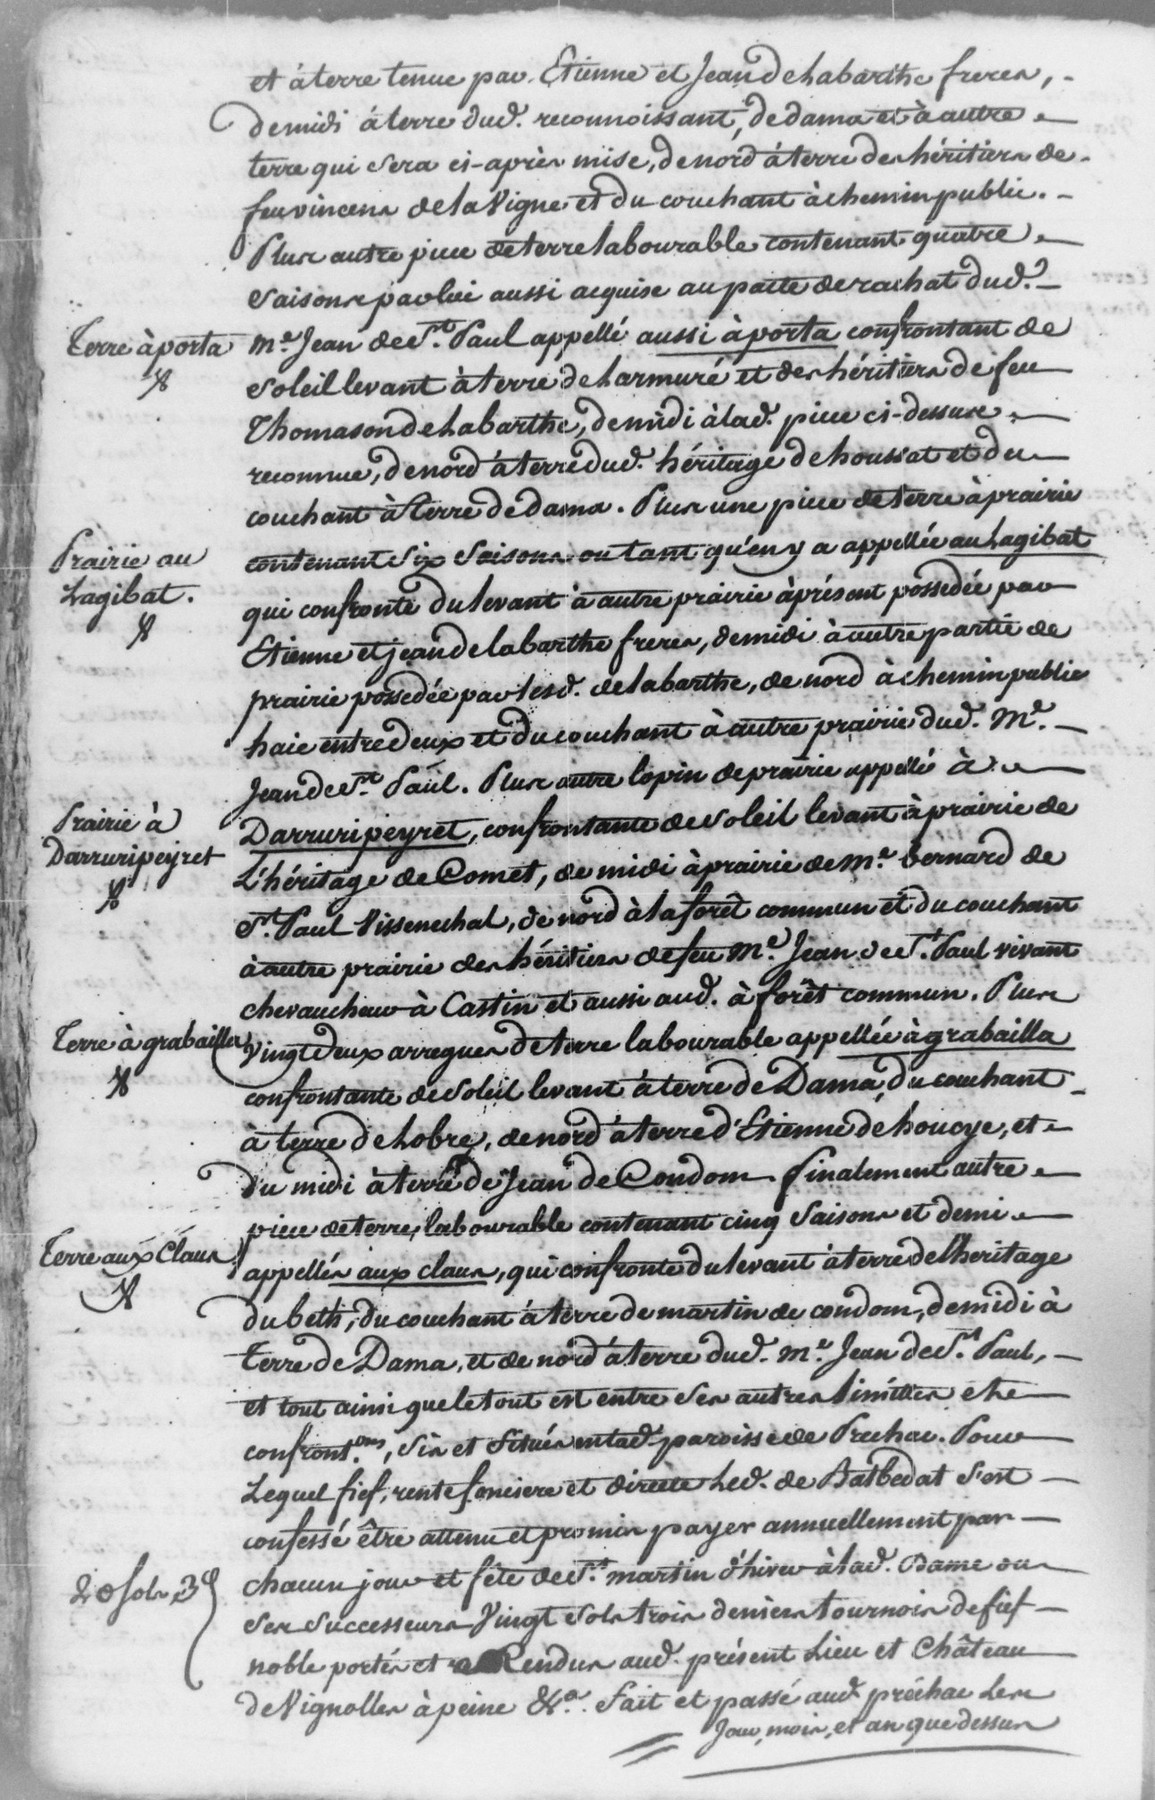 et à terre tenue par Etienne et Jean de Labarthe freres,
de midi à terre dud. reconnoissant, de dama et à autre
terre qui sera ci-après mise, de nord à terre des héritiers de
feu vincens de la Vigne et du couchant à chemin public.
Plus autre piece de terre labourable contenant quatre
saisons par lui aussi acquise au pacte de rachat dud.
Terre à porta
Me. Jean de St. Paul appellé aussi à porta confrontant de
soleil levant à terre de Larmuré et des héritiers de feu
Thomason de Labarthe, de midi à lad. piece ci-dessus
reconnue, de nord à terre dud. héritage de houssat et du
couchant à terre de dama. Plus une piece de terre à prairie
Prairie au
Lagibat.
contenant six saisons ou tant qu'en y a appellée au Lagibat
qui confronte du levant à autre prairie àprésent possedée par
Etienne et jean de labarthe freres, de midi à autre partie de
prairie possedée par lesd. de labarthe, de nord à chemin public
haie entre deux et du couchant à autre prairie dud. Me.
Jean de St. Paul. Plus autre lopin de prairie appellé à
Prairie à
Darruripeyret
Darruripeyret, confrontante de soleil levant à prairie de
L'héritage de Comet, de midi à prairie de Me. bernard de
St. Paul Vissenechal, de nord à la forêt commun et du couchant
à autre prairie des héritiers de feu Me. Jean de St. Paul vivant
chevaucheur à Castin et aussi aud. à forêt commun. Plus
Terre à grabailla
Vingt deux arregues de terre labourable appellée à grabailla
confrontante de soleil levant à terre de Dama, du couchant
à terre de Lobre, de nord à terre d'Etienne de houcye, et
du midi à terre de Jean de Condom finalement autre
piece de terre labourable contenant cinq saisons et demi
Terre aux Claus
appellés aux claus, qui confronte du levant à terre de l'heritage
du beth, du couchant à terre de martin de condom, de midi à
terre de Dama, et de nord à terre dud. Me. Jean de St. Paul,
et tout ainsi que le tout est entre ses autres limittes et
confront.ons, sis et situés en lad. paroisse de Prechac. Pour
Lequel fief, rente fonciere et directe Led. de Batbedat s'est
confessé être attenu et promis payer annuellement par
20 sols 3d
chacun jour et fête de St. martin d'hiver à lad. Dame ou
ses successeurs Vingt sols trois deniers tournois de fief
noble portés et Rendus aud. présent Lieu et Château
de Vignolles à peine &a. Fait et passé aud. préchac Les
Jour, mois, et an que dessus